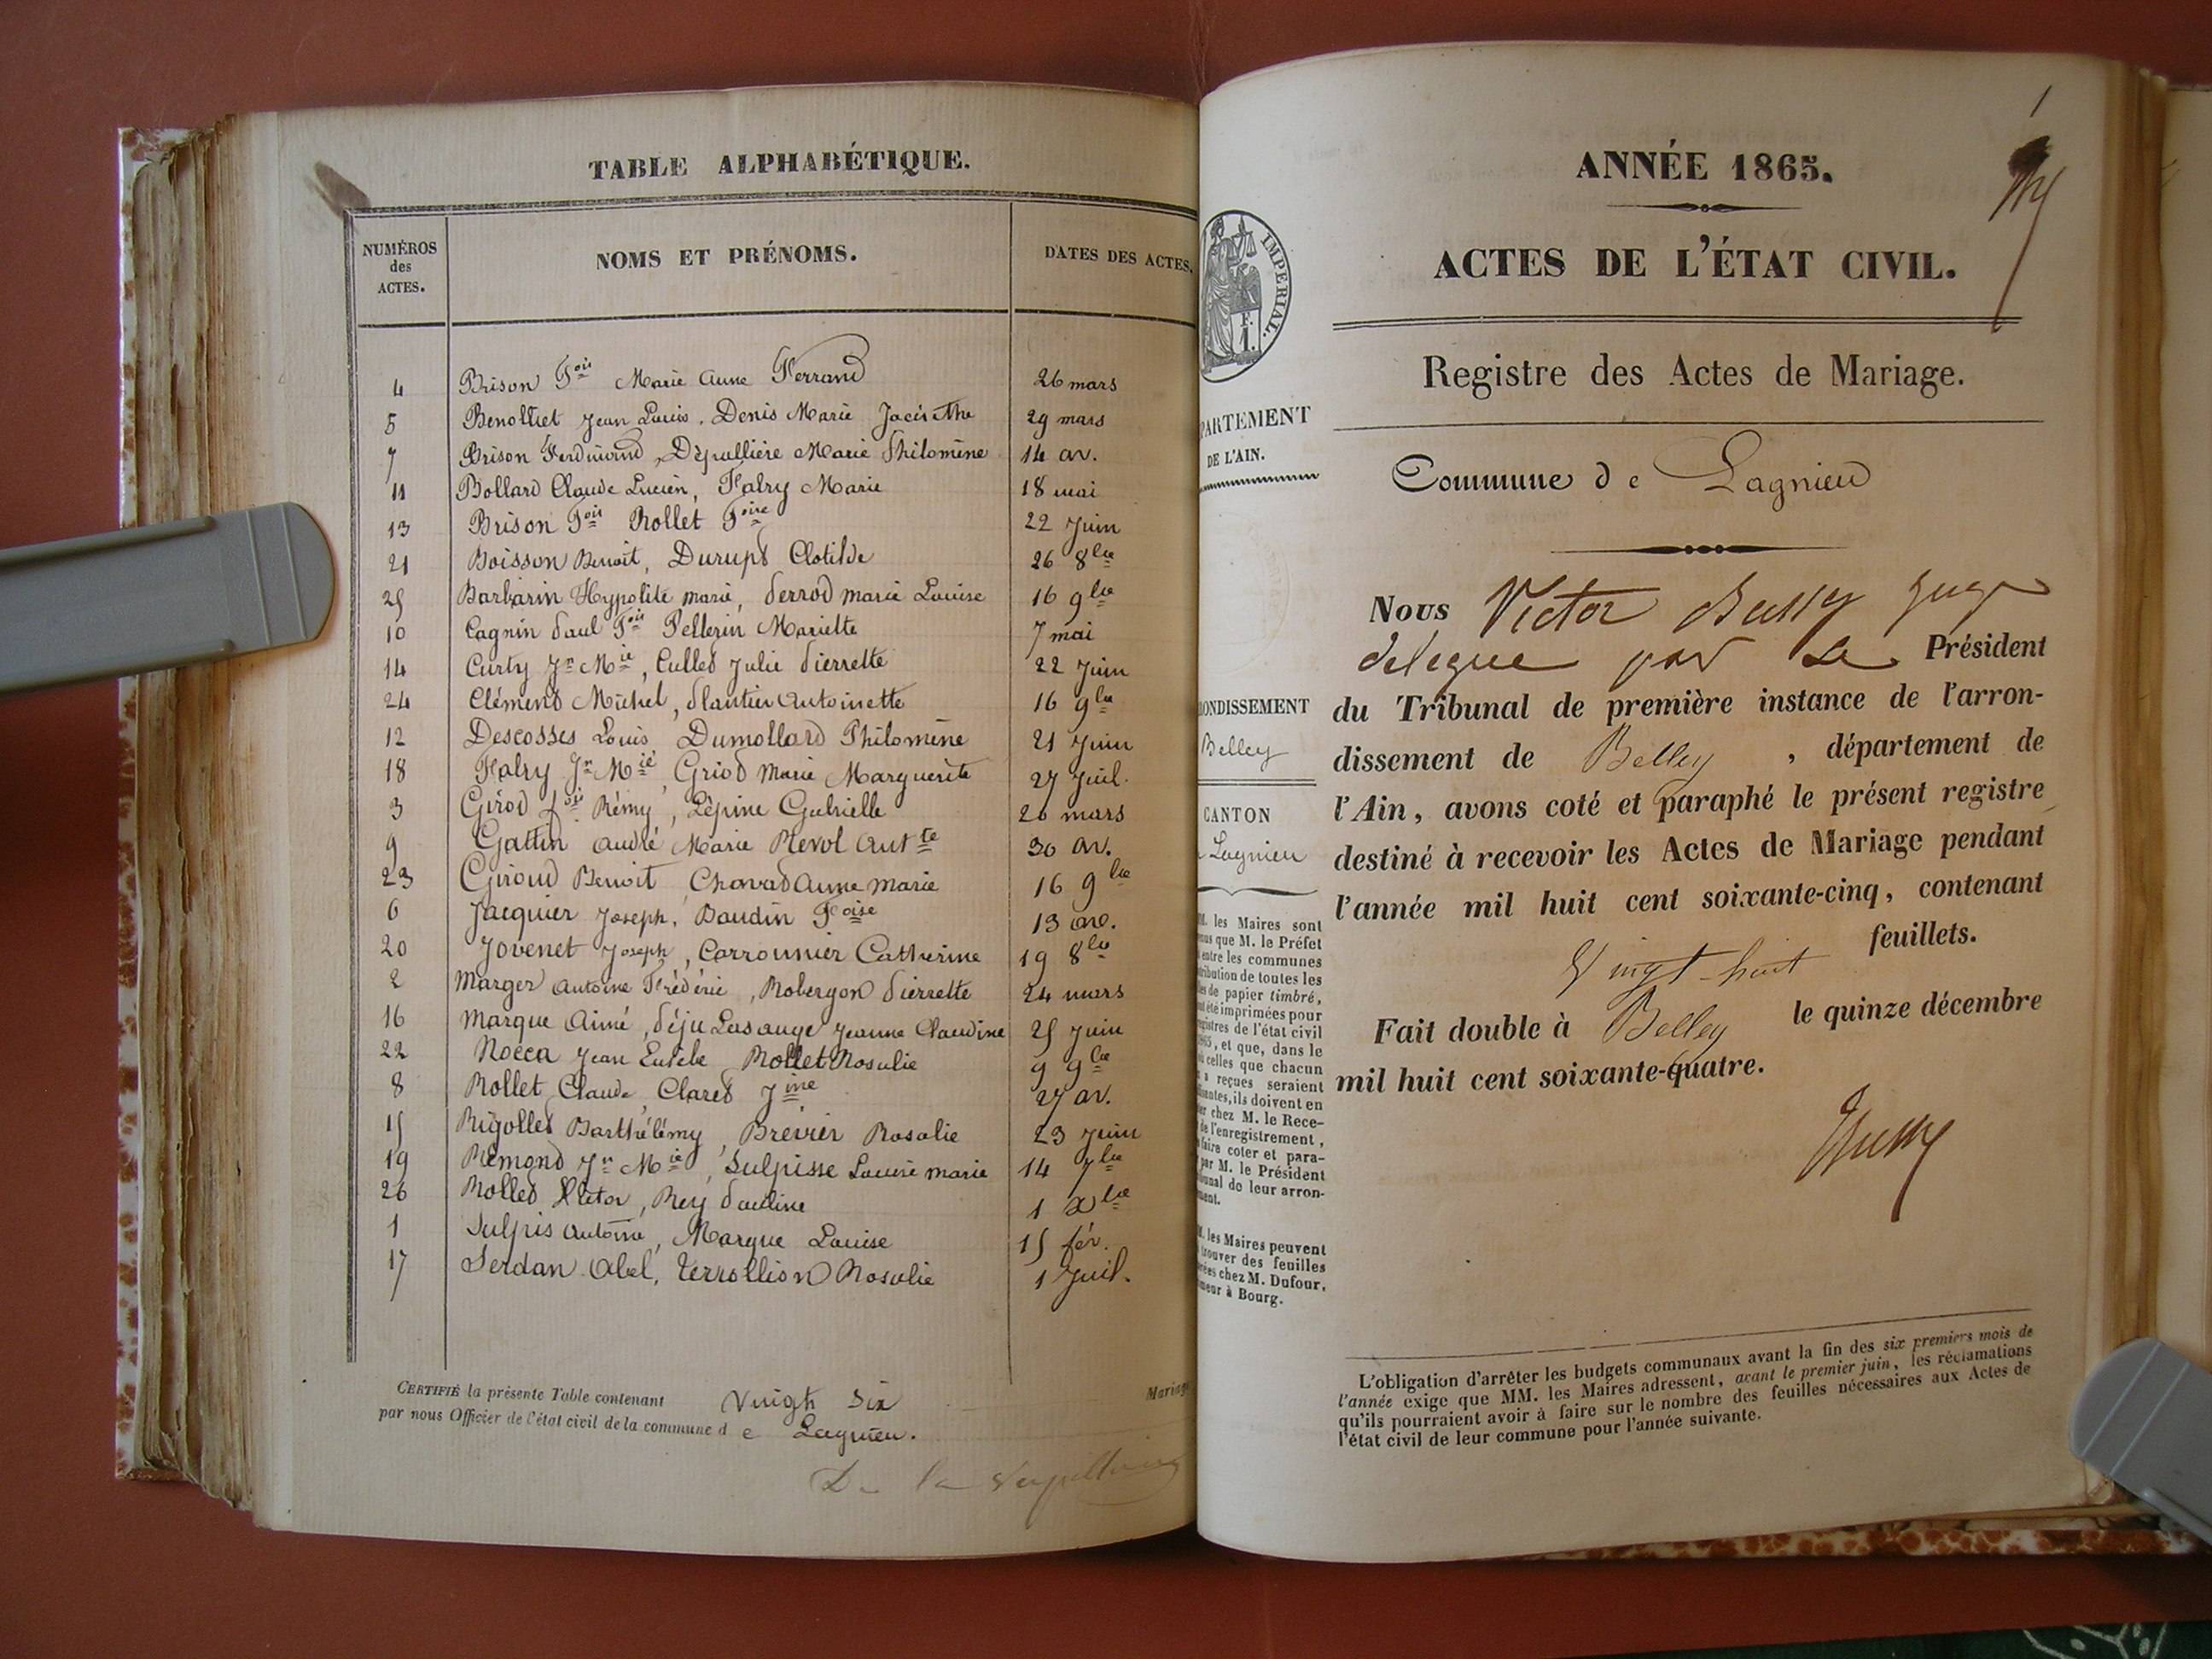 TABLE ALPHABÉTIQUE.
NUMÉROS des ACTES. NOMS ET PRÉNOMS. DATES DES ACTES.
4 Brison Fois Marie Anne Ferrand 26 mars
5 Benolliet Jean Louis. Denis Marie Jacinthe 29 mars
7 Brison Ferdinand, Dépullière Marie Philomène 14 av.
11 Bollard Claude Lucien, Falry Marie 18 mai
13 Brison Fois Rollet Foise 22 Juin
21 Boisson Benoit, Durupt Clotilde 26 8bre
25 Barbarin Hypolite marie, Perrod marie Louise 16 9bre
10 Cagnin Paul Fois Pellerin Mariette 7 mai
14 Curty Jn Mie, Cullet Julie Pierrette 22 Juin
24 Clément Michel, Plantier Antoinette 16 9bre
12 Descosses Louis, Dumollard Philomène 21 Juin
18 Falry Jn Mie, Griod Marie Marguerite 27 Juil.
3 Girod fois Rémy, Lépine Gabrielle 26 mars
9 Gattin André Marie Revol Antte 30 av.
23 Giroud Benoit Chavat Anne marie 16 9bre
6 Jacquier Joseph, Baudin Foise 13 av.
20 Jovenet Joseph, Carronnier Catherine 19 8bre
2 Marger Antoine Frédéric, Robergon Pierrette 24 mars
16 Marque Aimé, Péju Lasauge Jeanne Claudine 25 Juin
22 Rocca Jean Eusèbe Rollet Rosalie 9 9bre
8 Rollet Claude, Claret Jine 27 av.
15 Rigollet Barthélémy, Brevier Rosalie 23 Juin
19 Rémond Jn Mie, Sulpisse Louise marie 14 7bre
26 Rollet Victor, Rey Pauline 1 Xbre
1 Sulpis Antoine, Marque Louise 15 fév.
17 Serdan Abel, Verrollion Rosalie 1 Juil.
CERTIFIÉ la présente Table contenant Vingt Six Mariag
par nous Officier de l'état civil de la commune d e Lagnieu.
De la
1
ANNÉE 1865.
ACTES DE L'ÉTAT CIVIL.
IMPÉRIAL.
F.
1.
Registre des Actes de Mariage.
PARTEMENT
DE L'AIN.
Commune de Lagnieu
Nous Victor Bussy juge
délégué par Le Président
ONDISSEMENT
Belley
CANTON
Lagnieu
du Tribunal de première instance de l'arron-
dissement de Belley, département de
l'Ain, avons coté et paraphé le présent registre
destiné à recevoir les Actes de Mariage pendant
l'année mil huit cent soixante-cinq, contenant
Vingt-huit feuillets.
Fait double à Belley le quinze décembre
mil huit cent soixante-quatre.
Bussy
M. les Maires sont
que M. le Préfet
entre les communes
tribution de toutes les
de papier timbré,
été imprimées pour
gistres de l'état civil
1865, et que, dans le
celles que chacun
a reçues seraient
ils doivent en
chez M. le Rece-
de l'enregistrement,
faire coter et para-
par M. le Président
de leur arron-
ment.
M. les Maires peuvent
trouver des feuilles
chez M. Dufour,
à Bourg.
L'obligation d'arrêter les budgets communaux avant la fin des six premiers mois de
l'année exige que MM. les Maires adressent, avant le premier juin, les réclamations
qu'ils pourraient avoir à faire sur le nombre des feuilles nécessaires aux Actes de
l'état civil de leur commune pour l'année suivante.